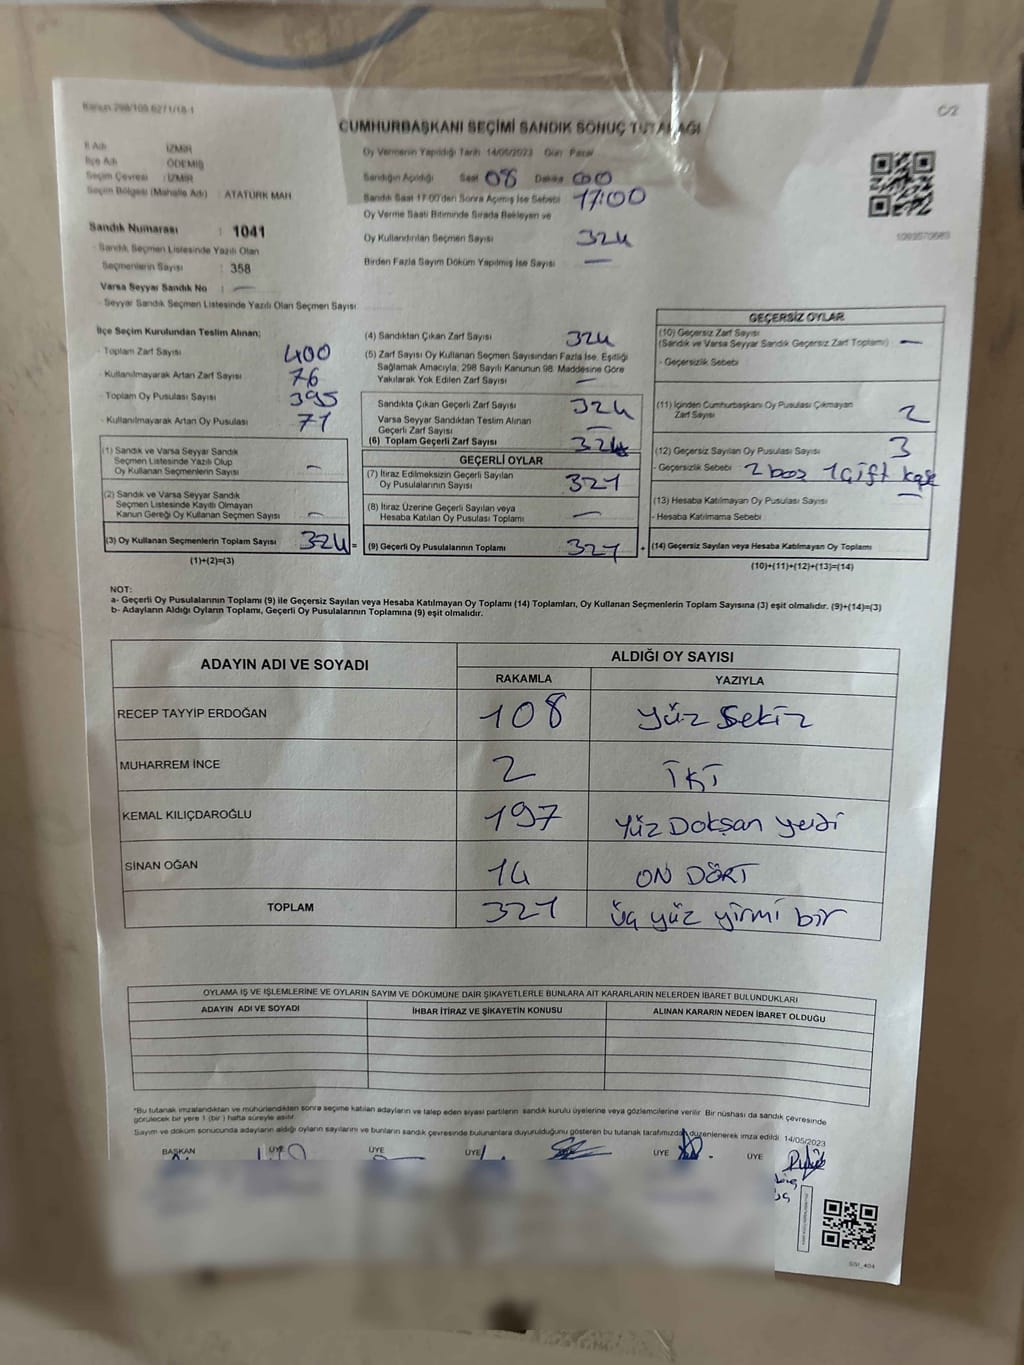 Kanun 298/105 6271/18-1
C/2
CUMHURBAŞKANI SEÇİMİ SANDIK SONUÇ TUTANAĞI
İl Adı İZMİR
İlçe Adı ÖDEMİŞ
Seçim Çevresi : İZMİR
Seçim Bölgesi (Mahalle Adı) : ATATÜRK MAH
Sandık Numarası : 1041
- Sandık Seçmen Listesinde Yazılı Olan
Seçmenlerin Sayısı : 358
Varsa Seyyar Sandık No : —
- Seyyar Sandık Seçmen Listesinde Yazılı Olan Seçmen Sayısı
Oy Vermenin Yapıldığı Tarih 14/05/2023 Gün Pazar
Sandığın Açıldığı Saat 08 Dakika 00
Sandık Saat 17:00'den Sonra Açılmış İse Sebebi 17:00
Oy Verme Saati Bitiminde Sırada Bekleyen ve
Oy Kullandırılan Seçmen Sayısı 324
Birden Fazla Sayım Döküm Yapılmış İse Sayısı —
İlçe Seçim Kurulundan Teslim Alınan;
- Toplam Zarf Sayısı 400
- Kullanılmayarak Artan Zarf Sayısı 76
- Toplam Oy Pusulası Sayısı 395
- Kullanılmayarak Artan Oy Pusulası 71
(1) Sandık ve Varsa Seyyar Sandık
Seçmen Listesinde Yazılı Olup
Oy Kullanan Seçmenlerin Sayısı —
(2) Sandık ve Varsa Seyyar Sandık
Seçmen Listesinde Kayıtlı Olmayan
Kanun Gereği Oy Kullanan Seçmen Sayısı —
(3) Oy Kullanan Seçmenlerin Toplam Sayısı 324 =
(1)+(2)=(3)
(4) Sandıktan Çıkan Zarf Sayısı 324
(5) Zarf Sayısı Oy Kullanan Seçmen Sayısından Fazla İse, Eşitliği
Sağlamak Amacıyla, 298 Sayılı Kanunun 98. Maddesine Göre
Yakılarak Yok Edilen Zarf Sayısı —
Sandıkta Çıkan Geçerli Zarf Sayısı 324
Varsa Seyyar Sandıktan Teslim Alınan
Geçerli Zarf Sayısı —
(6) Toplam Geçerli Zarf Sayısı 324
GEÇERLİ OYLAR
(7) İtiraz Edilmeksizin Geçerli Sayılan
Oy Pusulalarının Sayısı 321
(8) İtiraz Üzerine Geçerli Sayılan veya
Hesaba Katılan Oy Pusulası Toplamı —
(9) Geçerli Oy Pusulalarının Toplamı 321 +
GEÇERSİZ OYLAR
(10) Geçersiz Zarf Sayısı
(Sandık ve Varsa Seyyar Sandık Geçersiz Zarf Toplamı) —
- Geçersizlik Sebebi
(11) İçinden Cumhurbaşkanı Oy Pusulası Çıkmayan
Zarf Sayısı 2
(12) Geçersiz Sayılan Oy Pusulası Sayısı 3
- Geçersizlik Sebebi 2 boş 1 Çift kaşe
(13) Hesaba Katılmayan Oy Pusulası Sayısı —
- Hesaba Katılmama Sebebi
(14) Geçersiz Sayılan veya Hesaba Katılmayan Oy Toplamı
(10)+(11)+(12)+(13)=(14)
NOT:
a- Geçerli Oy Pusulalarının Toplamı (9) ile Geçersiz Sayılan veya Hesaba Katılmayan Oy Toplamı (14) Toplamları, Oy Kullanan Seçmenlerin Toplam Sayısına (3) eşit olmalıdır. (9)+(14)=(3)
b- Adayların Aldığı Oyların Toplamı, Geçerli Oy Pusulalarının Toplamına (9) eşit olmalıdır.
ADAYIN ADI VE SOYADI ALDIĞI OY SAYISI
RAKAMLA YAZIYLA
RECEP TAYYİP ERDOĞAN 108 yüz sekiz
MUHARREM İNCE 2 İKİ
KEMAL KILIÇDAROĞLU 197 Yüz Doksan yedi
SİNAN OĞAN 14 ON DÖRT
TOPLAM 321 üç yüz yirmi bir
OYLAMA İŞ VE İŞLEMLERİNE VE OYLARIN SAYIM VE DÖKÜMÜNE DAİR ŞİKAYETLERLE BUNLARA AİT KARARLARIN NELERDEN İBARET BULUNDUKLARI
ADAYIN ADI VE SOYADI İHBAR İTİRAZ VE ŞİKAYETİN KONUSU ALINAN KARARIN NEDEN İBARET OLDUĞU
*Bu tutanak imzalandıktan ve mühürlendikten sonra seçime katılan adayların ve talep eden siyasi partilerin sandık kurulu üyelerine veya gözlemcilerine verilir. Bir nüshası da sandık çevresinde
görülecek bir yere 1 (bir) hafta süreyle asılır.
Sayım ve döküm sonucunda adayların aldığı oyların sayılarını ve bunların sandık çevresinde bulunanlara duyurulduğunu gösteren bu tutanak tarafımızdan düzenlenerek imza edildi. 14/05/2023
BAŞKAN ÜYE ÜYE ÜYE ÜYE ÜYE